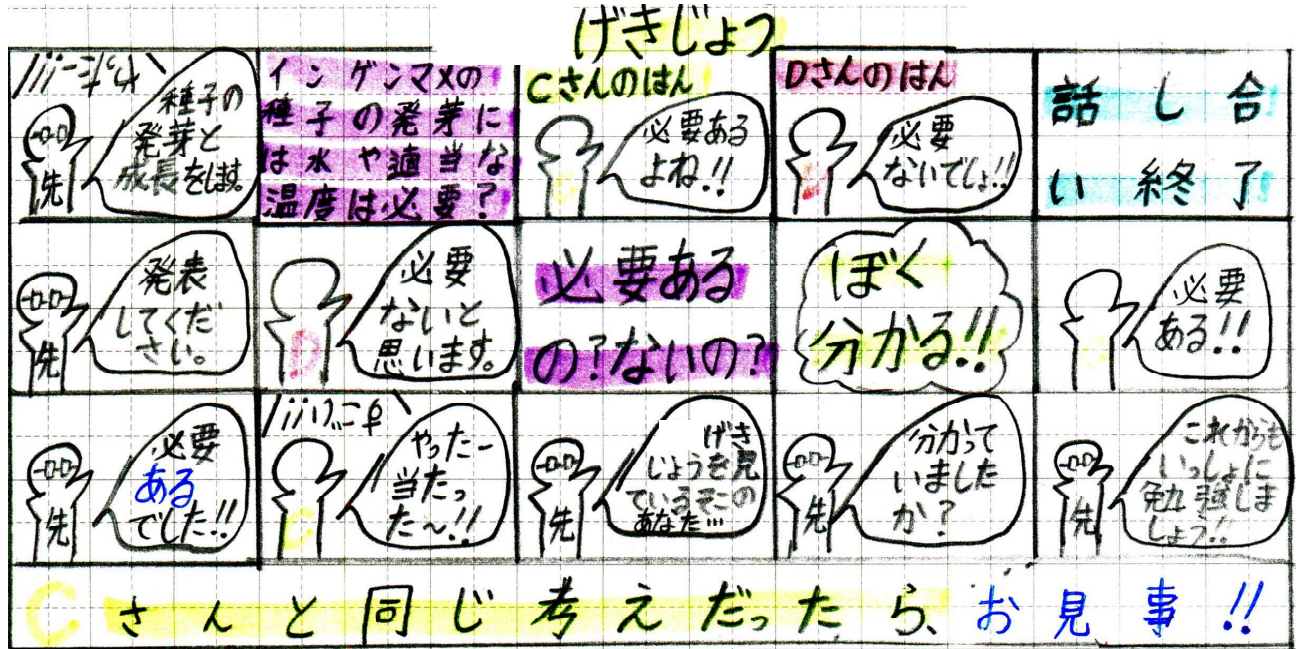 げきじょう
種子の
発芽と
成長をします。
先
インゲンマメの
種子の発芽に
は水や適当な
温度は必要?
Cさんのはん
必要ある
よね!!
Dさんのはん
必要
ないでしょ!!
話し合
い終了
発表
してくだ
さい。
先
必要
ないと
思います。
D
必要ある
の?ないの?
ぼく
分かる!!
必要
ある!!
C
必要
ある
でした!!
先
やったー
当たっ
た~!!
C
げき
じょうを見
ているそこの
あなた…
先
分かって
いました
か?
先
これからも
いっしょに
勉強しま
しょう!!
先
Cさんと同じ考えだったら、お見事!!